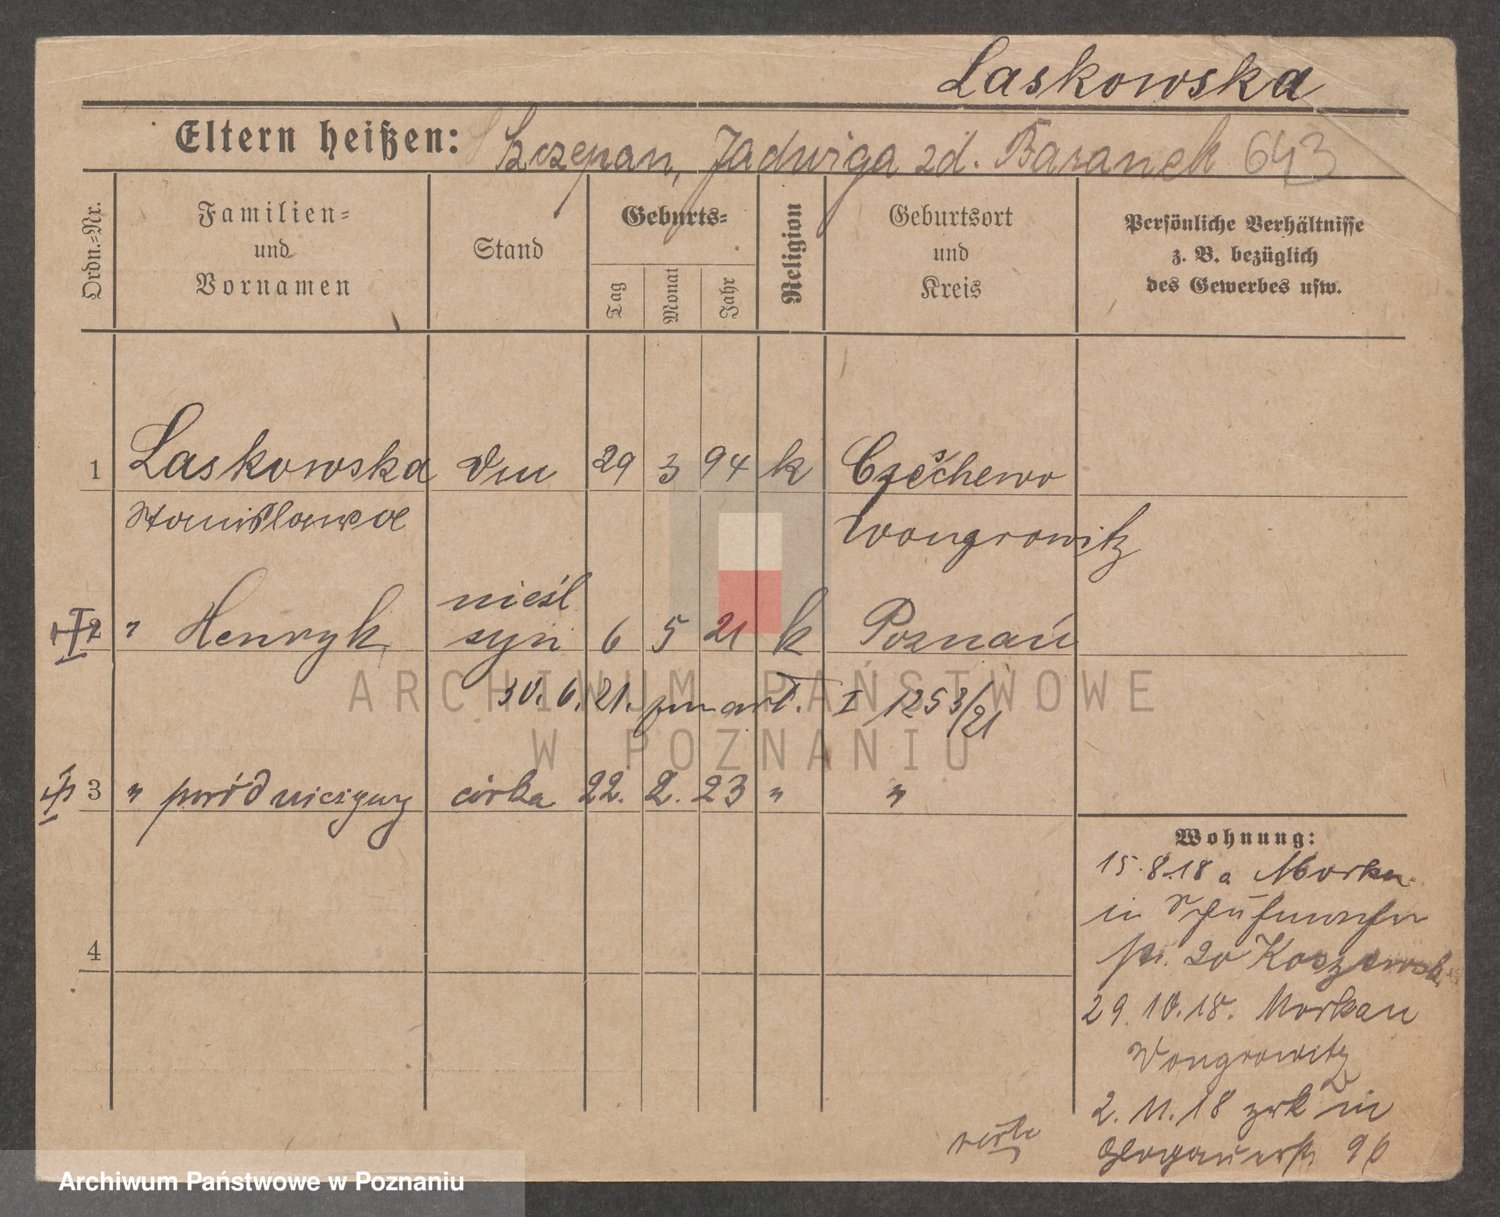 Laskowska
Eltern heißen: Szczepan, Jadwiga zd. Baranek 643
Ordn.-Nr.
Familien-
und
Vornamen
Stand
Geburts-
Tag
Monat
Jahr
Religion
Geburtsort
und
Kreis
Persönliche Verhältnisse
z. B. bezüglich
des Gewerbes usw.
1 Laskowska 29 3 94 k Czeschewo
Stanislawa Wongrowitz
nieśl
2 " Henryk syn 6 5 21 k Poznań
30. 6. 21. zmarł. I 1253/21
3 " córka 22. 2. 23 " "
4
Wohnung:
15.8.18 a
in
20
29.10.18.
Wongrowitz
2.11.18 zrk in
Glogauerstr 96
verte
ARCHIWUM PAŃSTWOWE
W POZNANIU
Archiwum Państwowe w Poznaniu